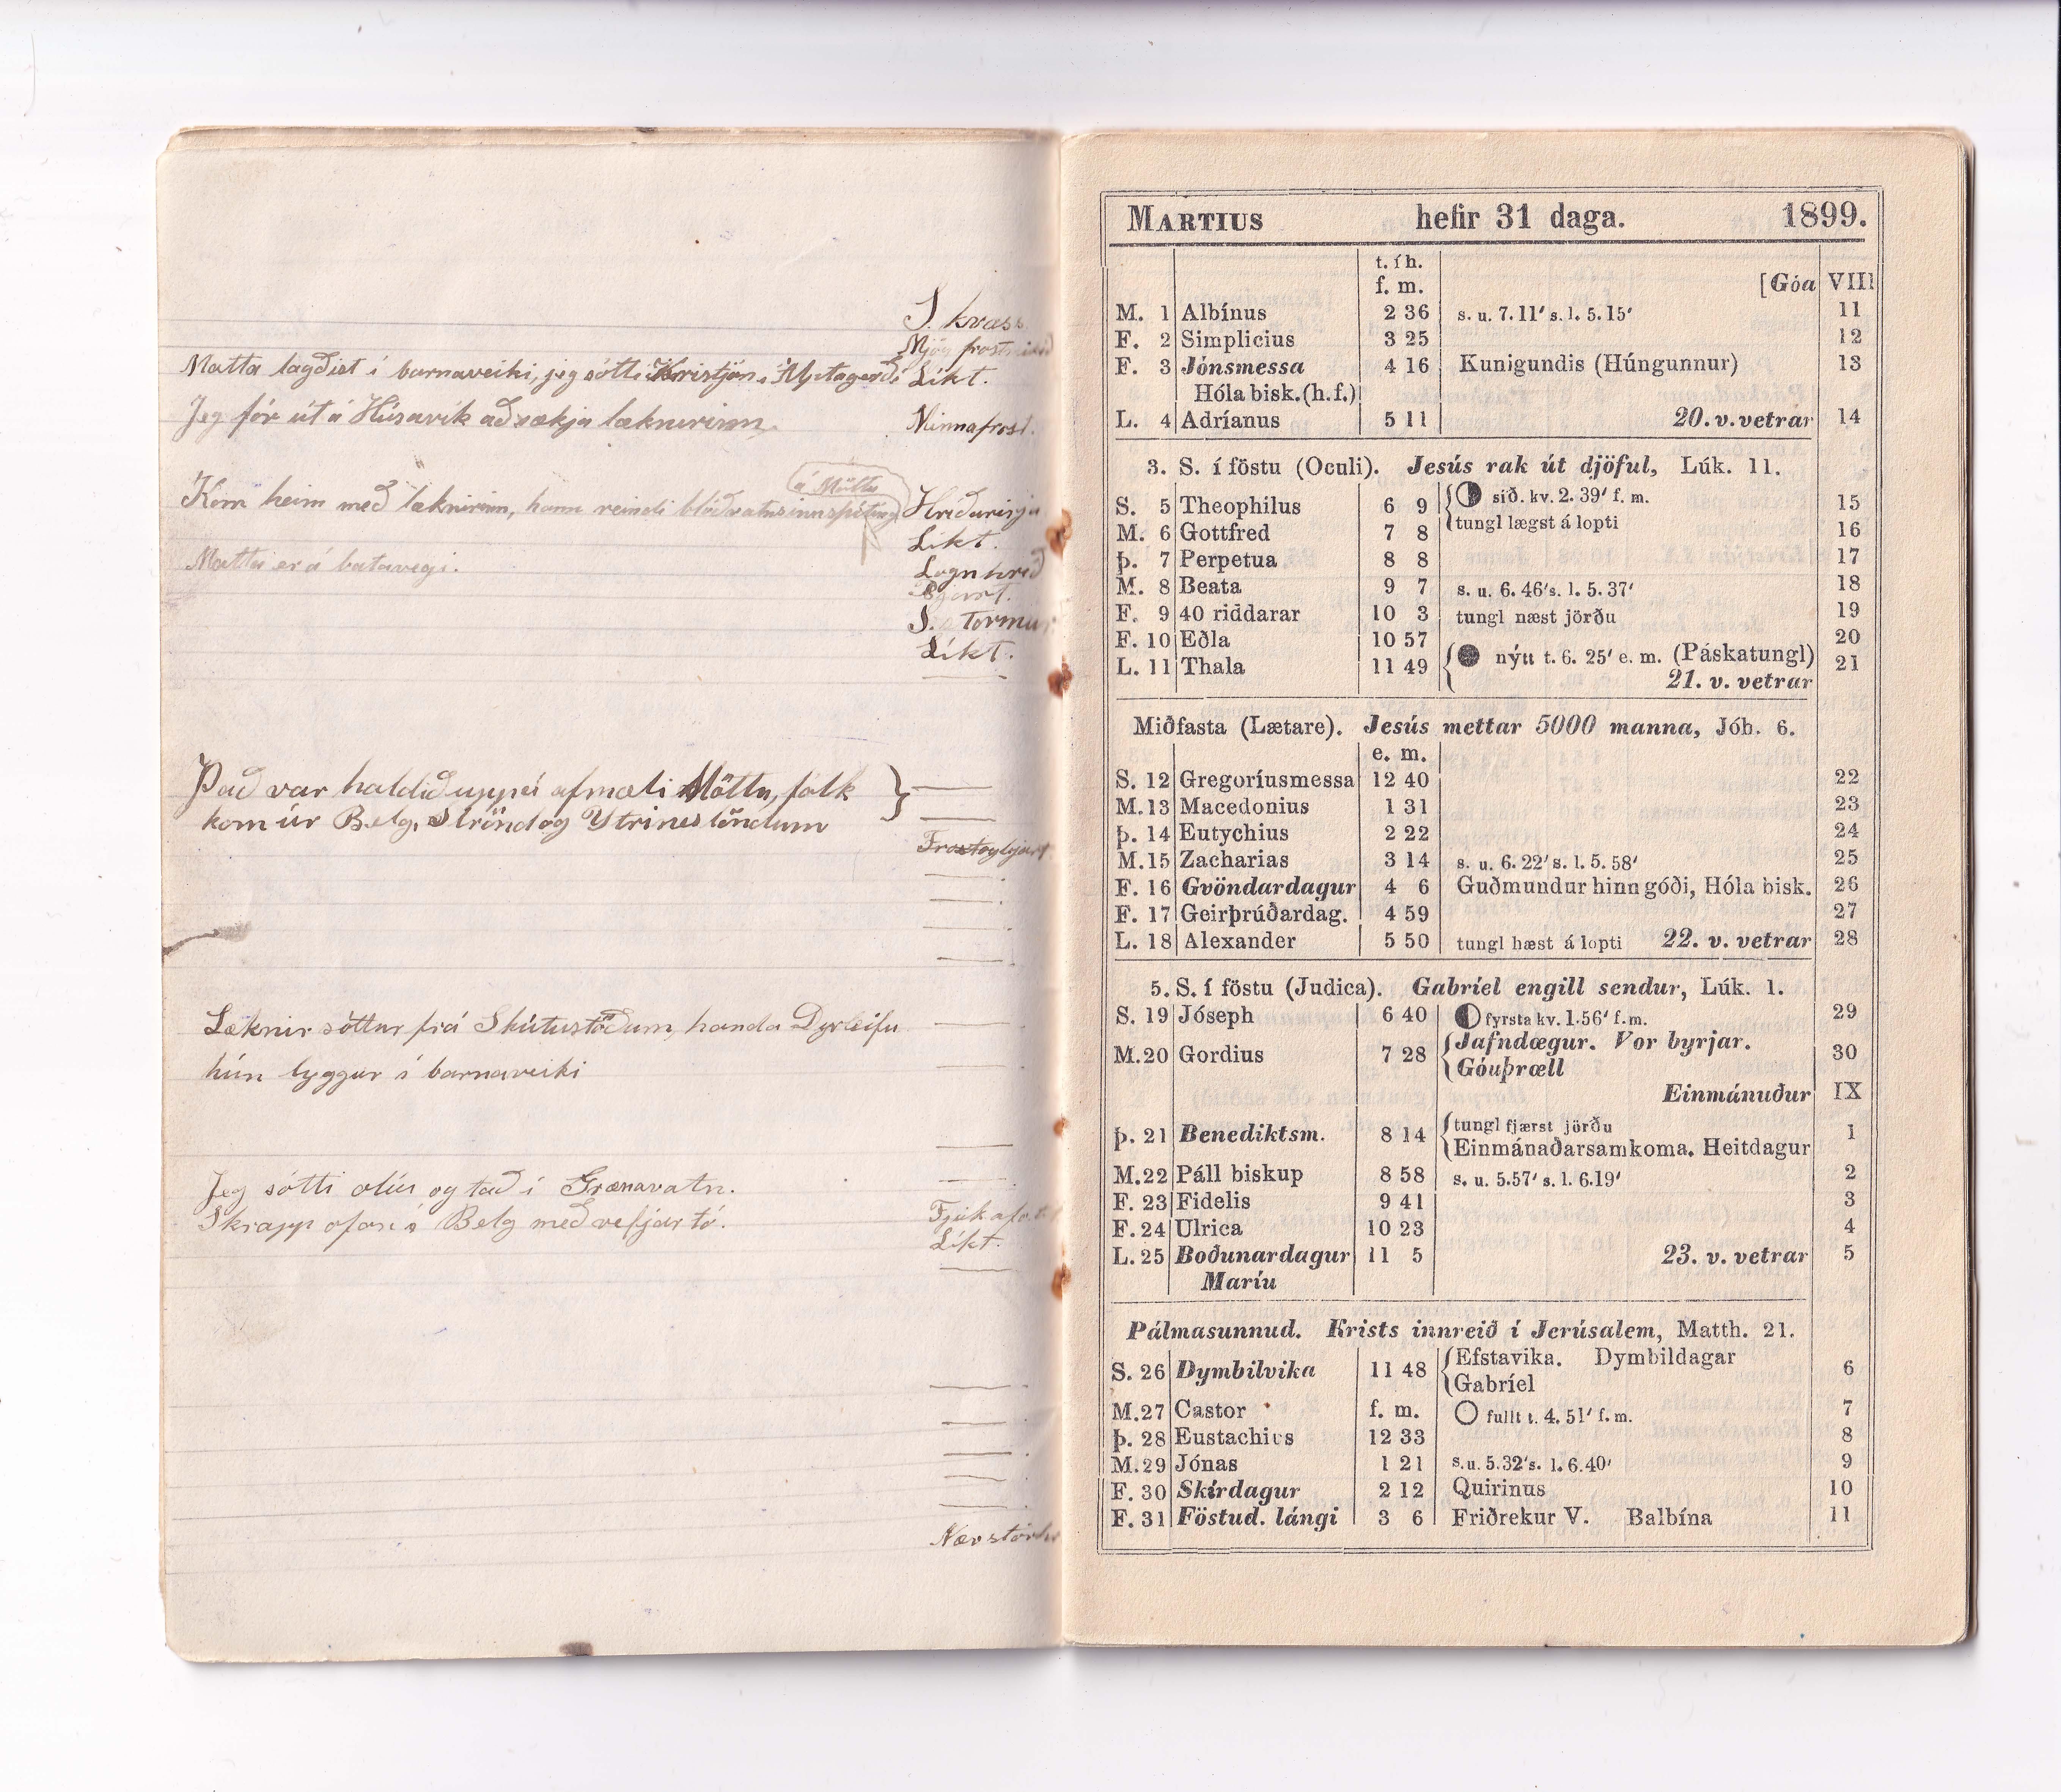 S. kvass
Mjög frostmikið
Matta lagðist í barnaveiki, jeg sótti Kristján í Alptagerði Líkt.
Jeg fór út á Húsavík að sækja læknirinn. Minna frost.
á Möttu
Kom heim með læknirinn, hann reindi blóðvatnsinnspíting Hríðarigja
Líkt.
Matta er á batavegi. Logn hríð
Bjart.
S. stormur
Líkt.
Það var haldið uppá afmæli Möttu, fólk
kom úr Belg, Strönd og Ytrineslöndum
Frost og bjart
Læknir sóttur frá Skútustöðum, handa Dyrleifu
hún lyggur í barnaveiki
Jeg sótti olíu og tað í Grænavatn.
Skrapp ofaní Belg með vefjartó.
Líkt.
MARTIUS hefir 31 daga. 1899.
t. í h.
f. m. [Góa VIII
M. 1 Albínus 2 36 s. u. 7. 11′ s. l. 5. 15′ 11
F. 2 Simplicius 3 25 12
F. 3 Jónsmessa 4 16 Kunigundis (Húngunnur) 13
Hóla bisk.(h.f.)
L. 4 Adríanus 5 11 20. v. vetrar 14
3. S. í föstu (Oculi). Jesús rak út djöful, Lúk. 11.
S. 5 Theophilus 6 9 síð. kv. 2. 39′ f. m. 15
M. 6 Gottfred 7 8 tungl lægst á lopti 16
Þ. 7 Perpetua 8 8 17
M. 8 Beata 9 7 s. u. 6. 46′ s. l. 5. 37′ 18
F. 9 40 riddarar 10 3 tungl næst jörðu 19
F. 10 Eðla 10 57 20
L. 11 Thala 11 49 nýtt t. 6. 25′ e. m. (Páskatungl) 21
21. v. vetrar
Miðfasta (Lætare). Jesús mettar 5000 manna, Jóh. 6.
e. m.
S. 12 Gregoríusmessa 12 40 22
M. 13 Macedonius 1 31 23
Þ. 14 Eutychius 2 22 24
M. 15 Zacharias 3 14 s. u. 6. 22′ s. l. 5. 58′ 25
F. 16 Gvöndardagur 4 6 Guðmundur hinn góði, Hóla bisk. 26
F. 17 Geirþrúðardag. 4 59 27
L. 18 Alexander 5 50 tungl hæst á lopti 22. v. vetrar 28
5. S. í föstu (Judica). Gabríel engill sendur, Lúk. 1.
S. 19 Jóseph 6 40 fyrsta kv. 1.56′ f. m. 29
M. 20 Gordius 7 28 Jafndægur. Vor byrjar. 30
Góuþræll
Einmánuður IX
Þ. 21 Benediktsm. 8 14 tungl fjærst jörðu 1
Einmánaðarsamkoma. Heitdagur
M. 22 Páll biskup 8 58 s. u. 5.57′ s. l. 6.19′ 2
F. 23 Fidelis 9 41 3
F. 24 Ulrica 10 23 4
L. 25 Boðunardagur 11 5 23. v. vetrar 5
Maríu
Pálmasunnud. Krists innreið í Jerúsalem, Matth. 21.
S. 26 Dymbilvika 11 48 Efstavika. Dymbildagar 6
Gabríel
M. 27 Castor f. m. fullt t. 4. 51′ f. m. 7
Þ. 28 Eustachius 12 33 8
M. 29 Jónas 1 21 s. u. 5.32′ s. l. 6.40′ 9
F. 30 Skírdagur 2 12 Quirinus 10
F. 31 Föstud. lángi 3 6 Friðrekur V. Balbína 11